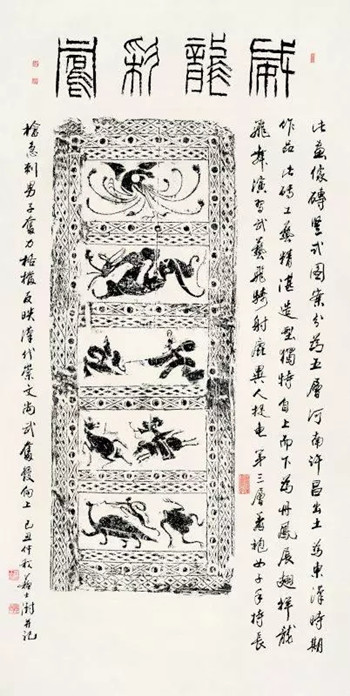 威龍彩鳳
此畫像磚豎式圖案分為五層河南許昌出土為東漢時期
作品此磚工藝精湛造型獨特自上而下為丹鳳展翅祥龍
飛舞演習武藝飛騎射鹿異人捉 第三層著袍女子手持長
槍急刺男子奮力格擋反映漢代崇文尚武奮發向上 己丑仲秋蘇士澍并記